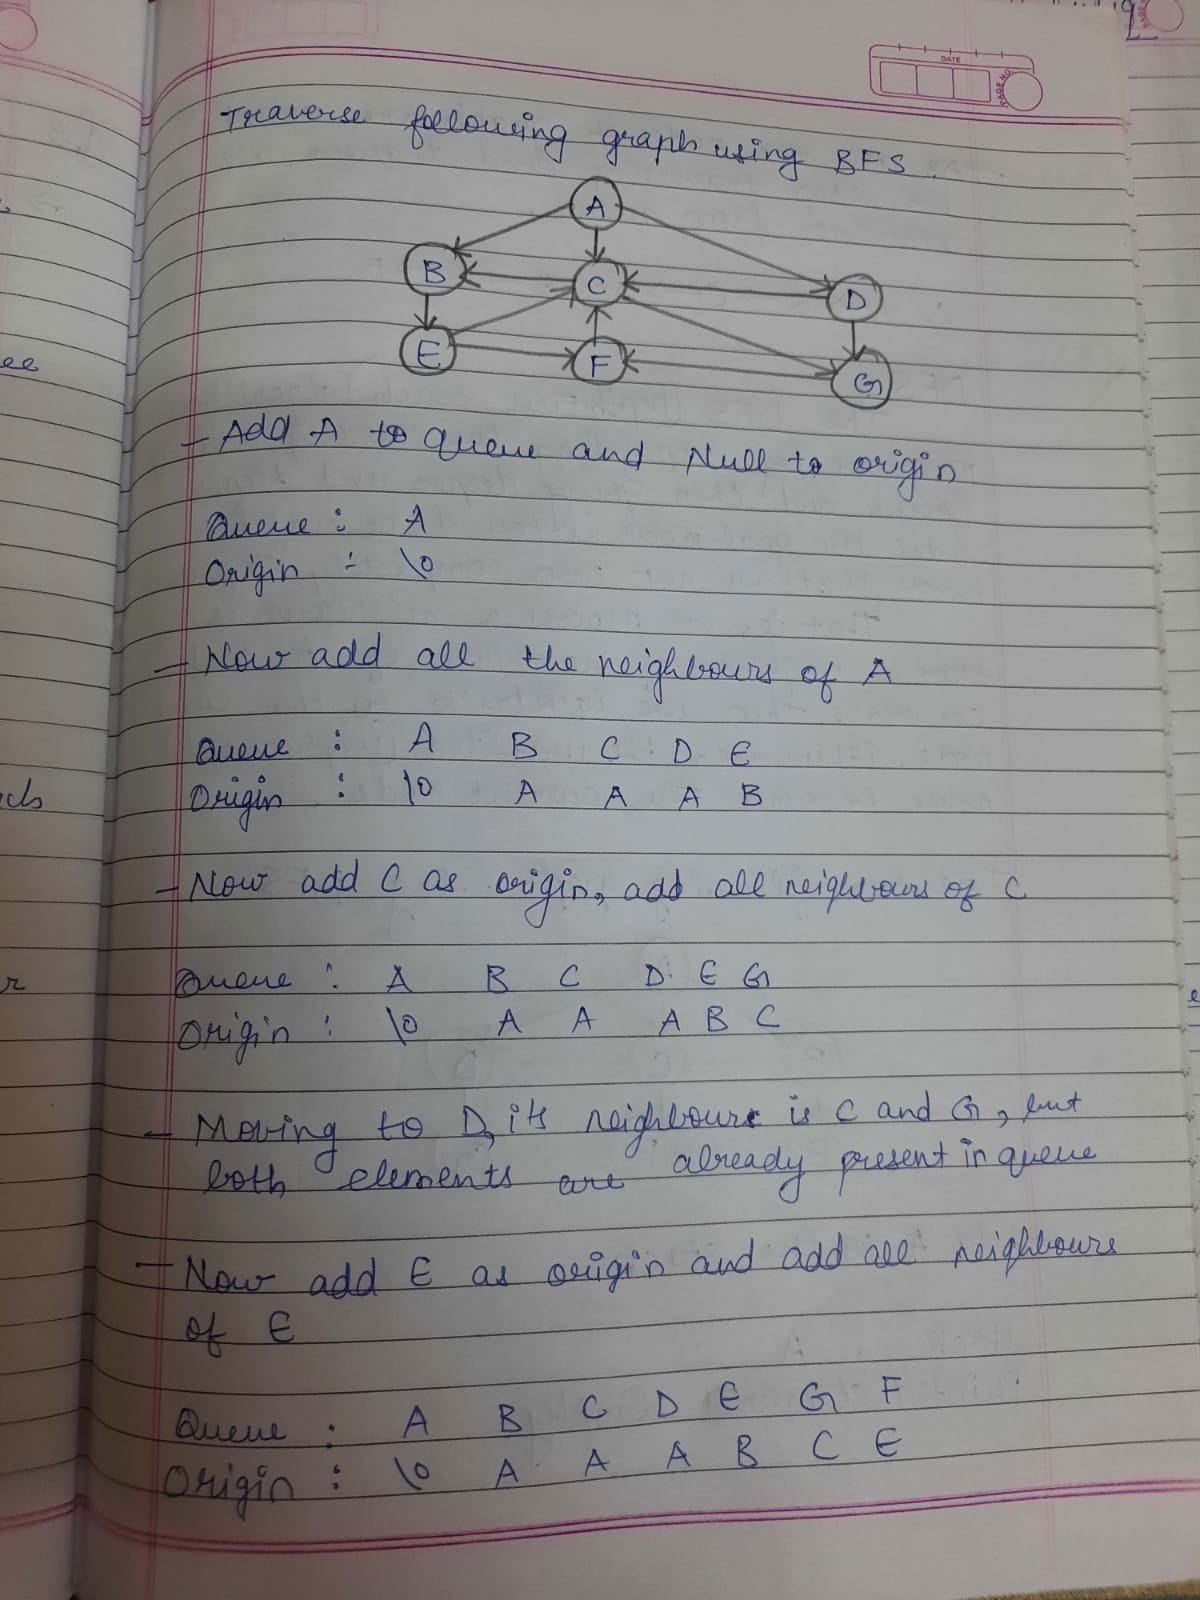 DATE
PAGE NO.
Traverse following graph using BFS.
A
B C D
E F G
- Add A to queue and Null to origin
Queue : A
Origin : \0
- Now add all the neighbours of A
Queue : A B C D E
Origin : \0 A A A B
- Now add C as origin, add all neighbours of C
Queue : A B C D E G
Origin : \0 A A A B C
- Moving to D, it's neighbours is C and G, but
both elements are already present in queue
- Now add E as origin and add all neighbours
of E
Queue : A B C D E G F
Origin : \0 A A A B C E
ee